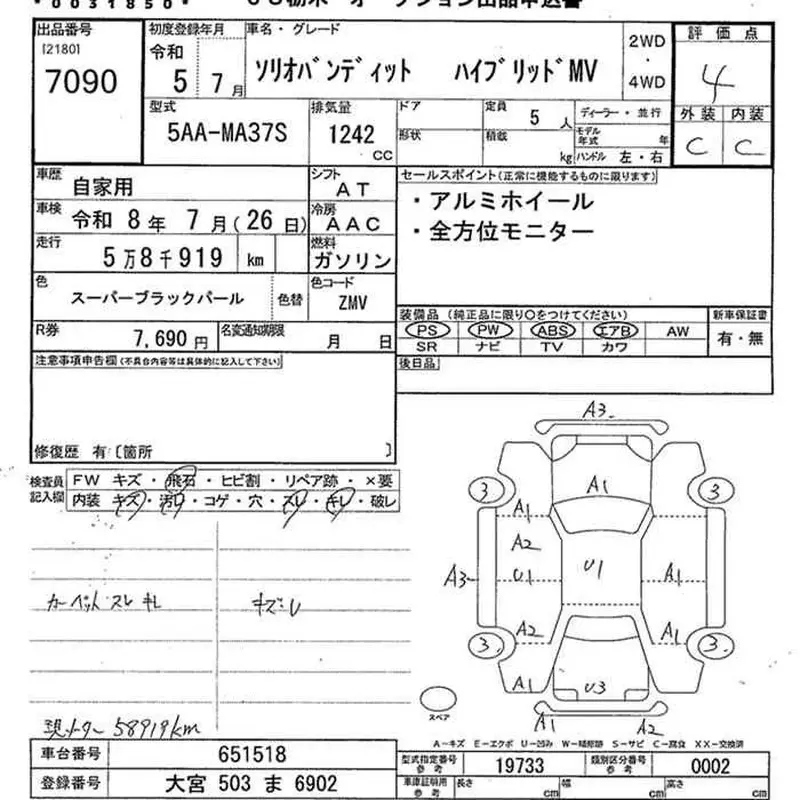 *0031850*
出品番号
[2180]
7090
初度登録年月
令和
5 7月
車名・グレード
ソリオバンディット ハイブリッドMV
2WD
・
4WD
評価点
4
外装 内装
C C
型式
5AA-MA37S
排気量
1242
CC
ドア
形状
定員
5人
積載
kg
ディーラー・並行
モデル年式 年
ハンドル 左・右
車歴
自家用
シフト
AT
車検
令和 8年 7月(26日)
冷房
AAC
走行
5万8千919 km
燃料
ガソリン
色
スーパーブラックパール
色替
色コード
ZMV
R券
7,690円
名変通知期限
月 日
セールスポイント(正常に機能するものに限ります)
・アルミホイール
・全方位モニター
装備品 (純正品に限り○をつけてください)
PS PW ABS エアB AW
SR ナビ TV カワ
新車保証書
有・無
後日品
注意事項申告欄(不具合内容等は具体的に記入して下さい)
修復歴 有〔箇所 〕
検査員記入欄
FW キズ・飛石・ヒビ割・リペア跡・×要
内装 キズ・汚れ・コゲ・穴・スレ・キレ・破レ
カーペットスレ キレ
キズU
現メーター 58919km
A3
3 A1 3
A1
A2
U1 U1
A3 A1
A2 A1
3 3
A1 U3
スペア
A1 A2
A-キズ E-エクボ U-凹み W-補修跡 S-サビ C-腐食 XX-交換済
車台番号 651518
登録番号 大宮 503 ま 6902
型式指定番号 参考 19733
類別区分番号 参考 0002
車庫証明用 参考 長さ cm 幅 cm 高さ cm